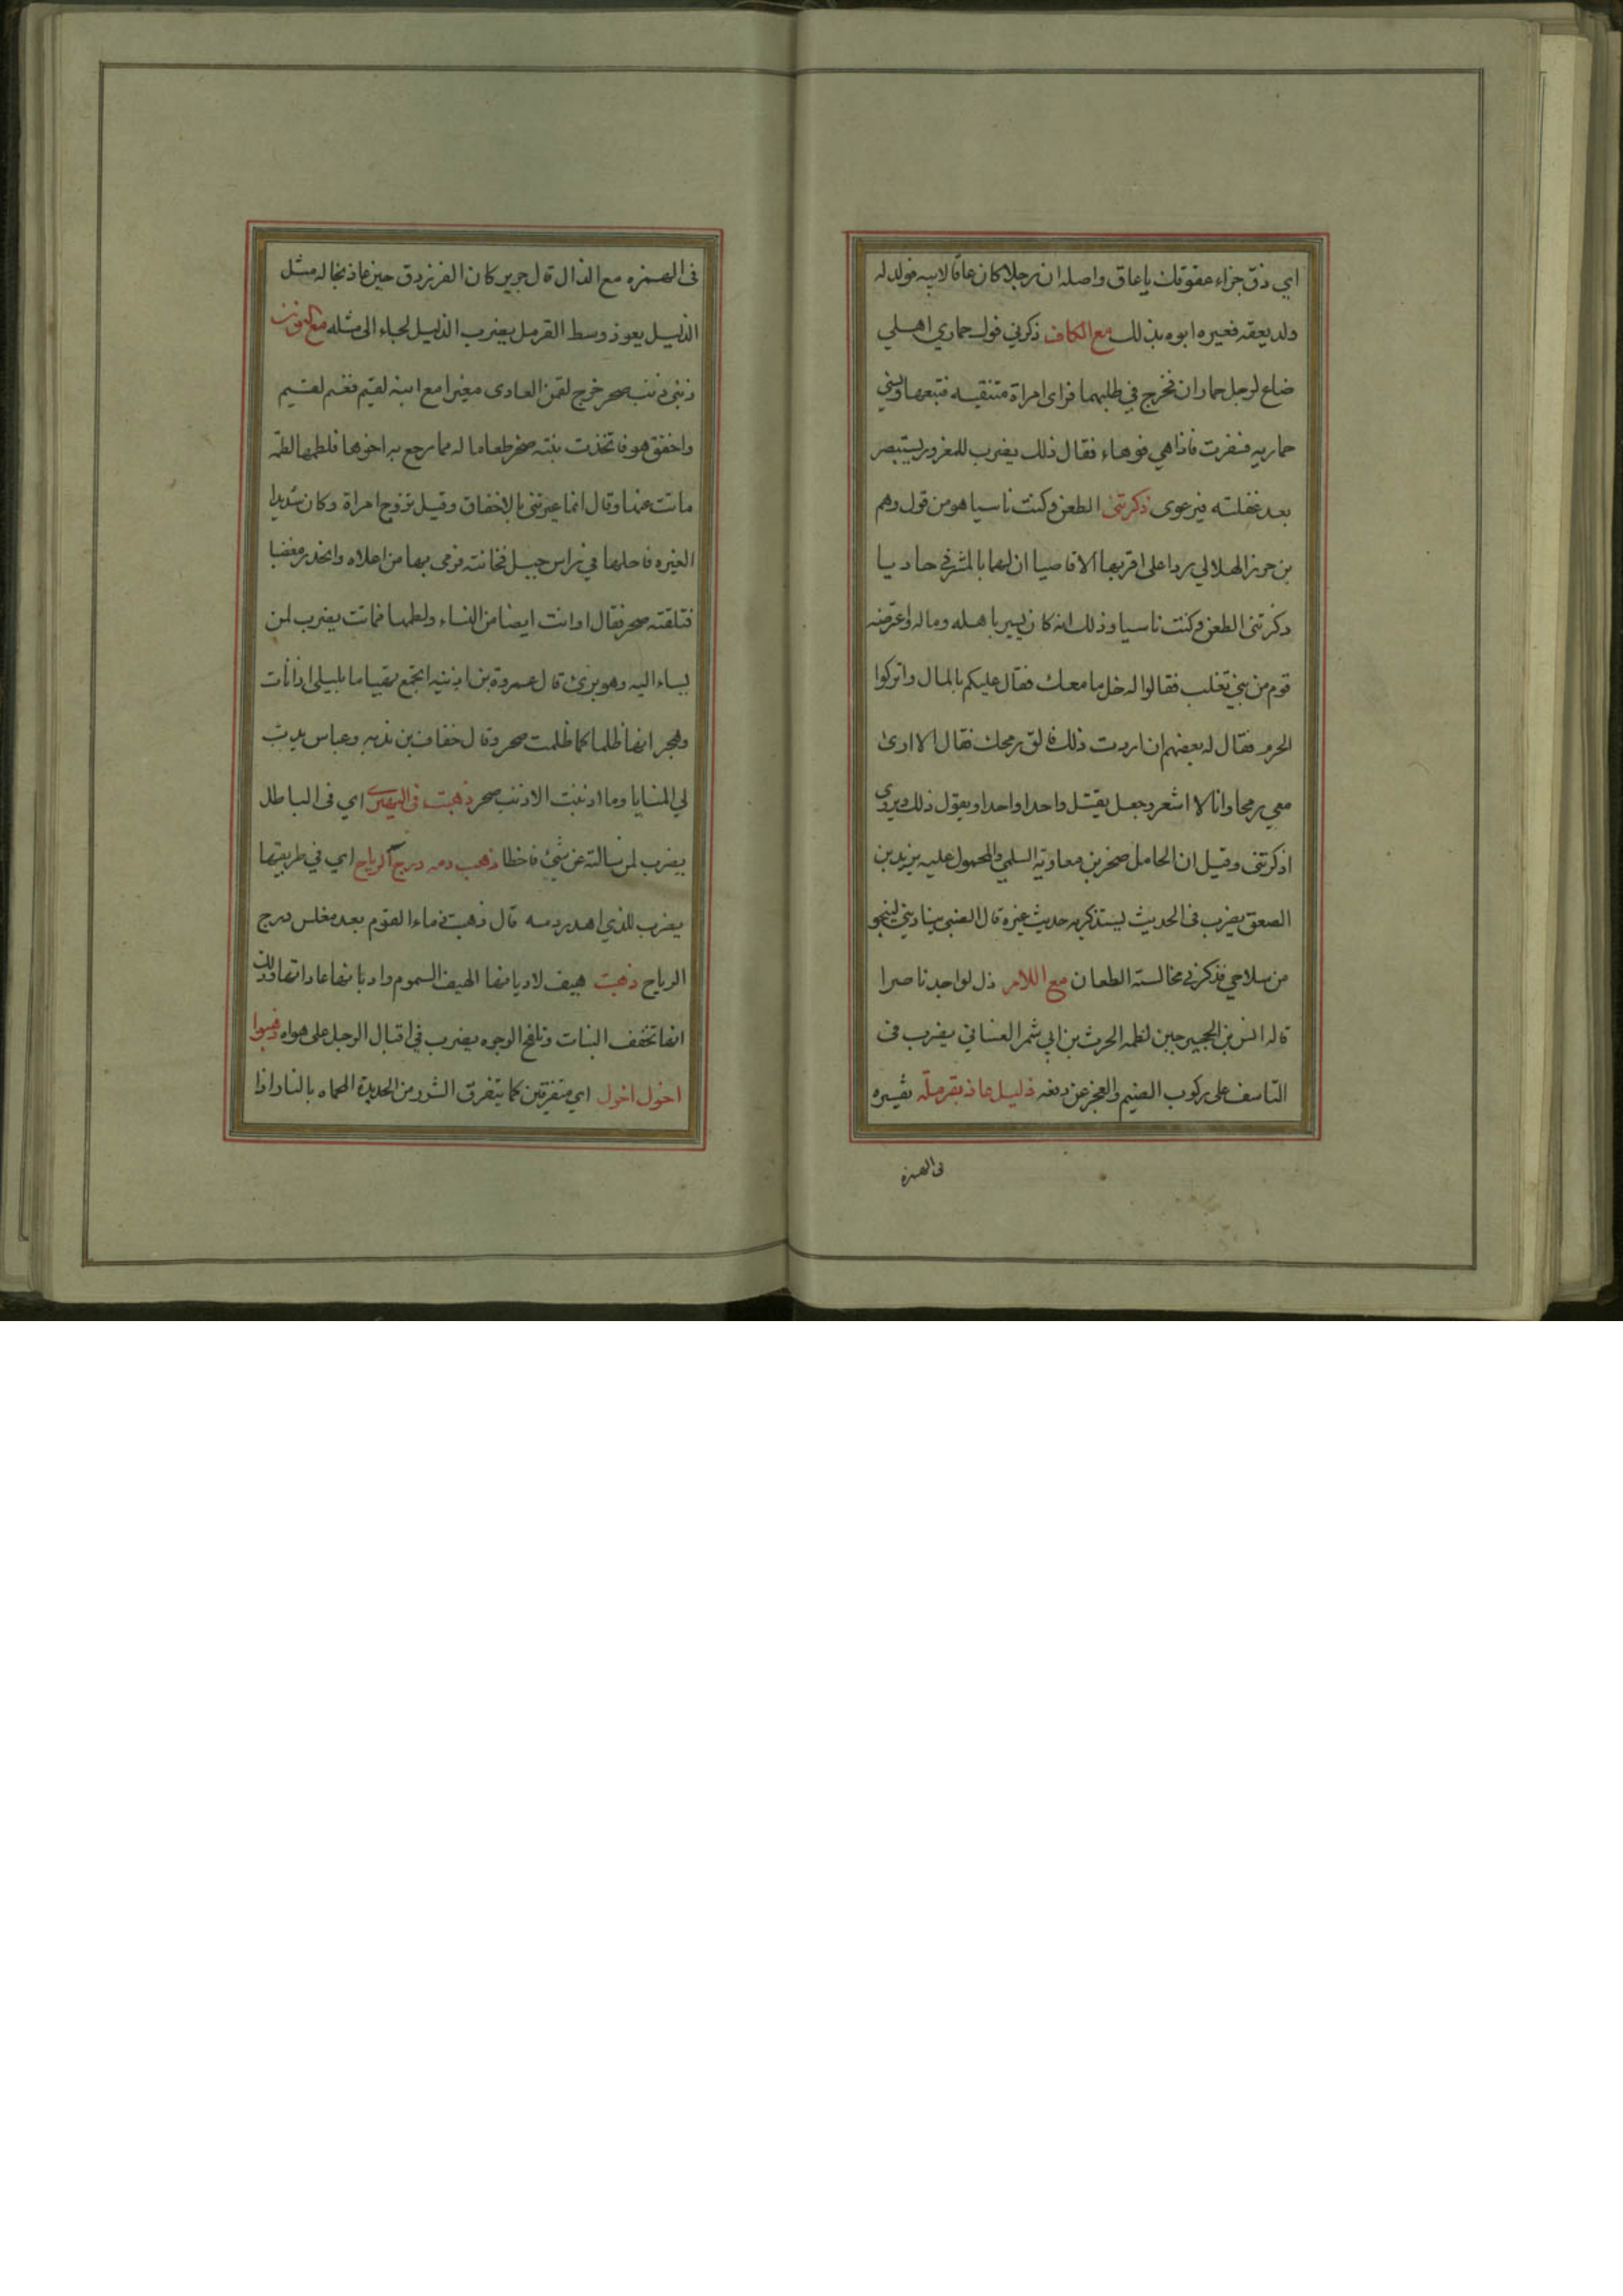 اي ذق جزاء عقوقك يا عاق واصله ان رجلا كان عاقا لابيه فولد له
ولد يعقه فعيره ابوه بذلك مع الكاف ذكرني فوك حماري اهلي
ضاع لرجل حماران فخرج في طلبهما فراى امراة متنقبه فتبعها ونسي
حماريه فسفرت فاذا هي فوهاء فقال ذلك يضرب للمغرور ليستبصر
بعد غفلته فيرعوى ذكرتني الطعن وكنت ناسيا هو من قول رهم
بن حزيز الهلالي ردا على اقربها الاقاصيا ان لها بالمشرفي حاديا
ذكرتني الطعن وكنت ناسيا وذلك انه كان يسير باهله وماله فاعترضه
قوم من بني تغلب فقالوا له خل ما معك فقال عليكم بالمال واتركوا
الحرم فقال له بعضهم ان اردت ذلك فالق رمحك فقال الا ارى
معي رمحا وانا لا اشعر وجعل يقتل واحدا واحدا ويقول ذلك ويروى
اذكرتني وقيل ان الحامل صخر بن معاوية السلمي والمحمول عليه يزيد بن
الصعق يضرب فى الحديث يستذكر به حديث غيره قال الضبي يناديني لينجو
من سلاحي فذكرني مخالسة الطعان مع اللام ذل لو اجد ناصرا
قاله انس بن الحجير حين لطمه الحرث بن ابي شمر الغساني يضرب فى
التاسف على ركوب الضيم والعجز عن دفعه ذليل عاذ بقرملة تفسيره
فى الهمزة
فى الهمزه مع الذال قال جرير كان الفرزدق حين عاذ بخاله مثل
الذليل يعوذ وسط القرمل يضرب الذليل لجاء الى مثله مع النون
ذنبى ذنب صحر خرج لقمن العادى مغيرا مع ابنه لقيم فغنم لقيم
واخفق هو فاتخذت بنته صخر طعاما له مما رجع به اخوها فلطمها لطمة
ماتت عنها وقال انما عيرتنى بالاخفاق وقيل تزوج امراة وكان شديد
الغيره فاحلها في راس جبل فخانته فرمى بها من اعلاه وانحدر مغضبا
فتلقته صحر فقال او انت ايضا من النساء ولطمها فماتت يضرب لمن
يساء اليه وهو برئ قال عمروة بن اذينه اتجمع تهياما بليلى اذا نأت
وهجرانها ظلما كما ظلمت صحر وقال خفاف بن ندبه وعباس يدب
لي المنايا وما اذنبت الا ذنب صحر ذهبت فى اليهيرى اي فى الباطل
يضرب لمن سالته عن شئ فاخطا ذهب دمه درج الرياح اي في طريقتها
يضرب للذي اهدر دمه قال ذهبت دماء القوم بعد مغلس درج
الرياح ذهبت هيف لاديانها الهيف السموم واديانها عاداتها وذلك
انها تخفف النبات وتلفح الوجوه يضرب في اقبال الرجل على هواه ذهبوا
اخول اخول اي متفرقين كما يتفرق الشرر من الحديدة المحماه بالنار اذا